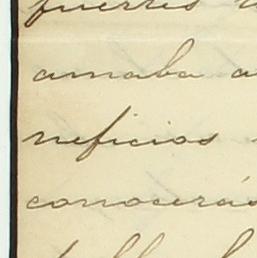 fuertes
amaba a
neficios
conocerás